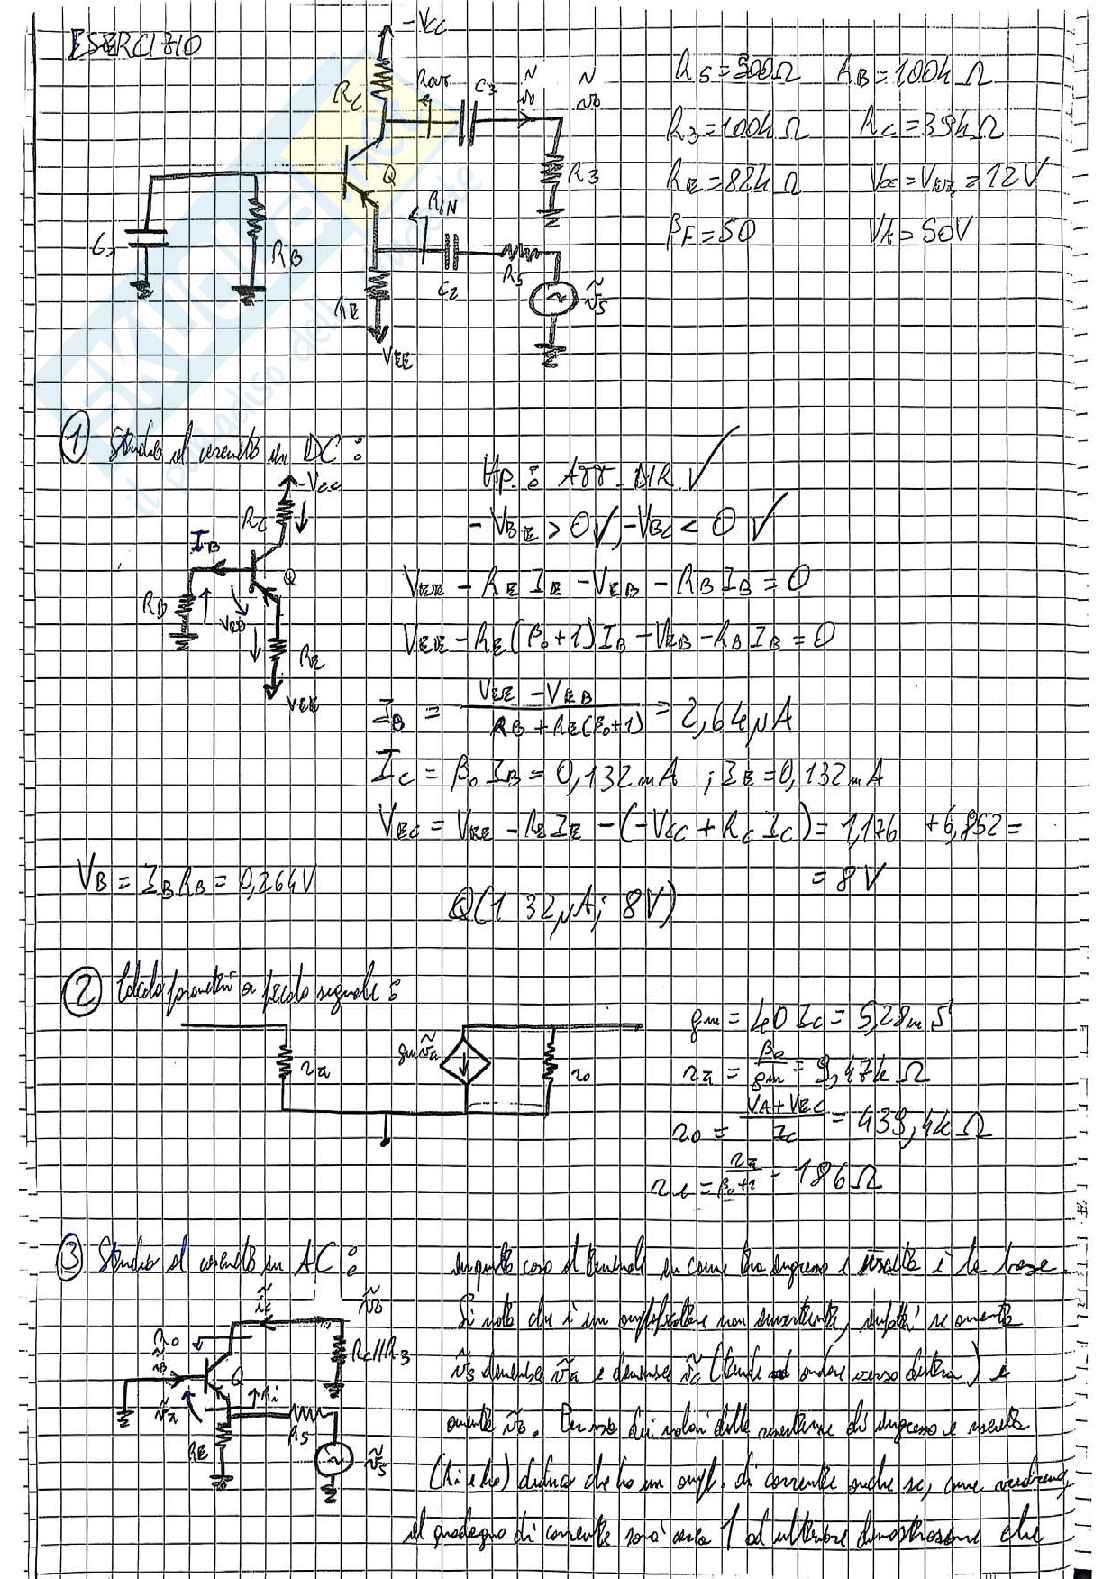 ESERCIZIO
-Vcc
Rc
Rout
C3
ṽo
Q
R3
RIN
RB
C2
RS
ṽs
RE
VEE
RS = 300Ω RB = 100kΩ
R3 = 100kΩ RC = 39kΩ
RE = 82kΩ VCC = VEE = 12V
βF = 50 VA = 50V
① Studio il circuito in DC:
Hp.: Att. DIR. ✓
-VBE > 0 ✓, -VBC < 0 ✓
-Vcc
RC
IB
Q
RB
VEB
RE
VEE
VEE - RE IE - VEB - RB IB = 0
VEE - RE(β0+1)IB - VEB - RB IB = 0
IB = (VEE - VEB) / (RB + RE(β0+1)) = 2,64 μA
IC = β0 IB = 0,132 mA ; IE = 0,132 mA
VEC = VEE - RE IE - (-VCC + RC IC) = 1,176 + 6,852 =
= 8V
VB = IB RB = 0,264V
Q(132μA; 8V)
② Calcolo parametri a piccolo segnale:
rπ
gm ṽπ
ro
gm = 40 IC = 5,28 mS
rπ = β0 / gm = 9,47kΩ
ro = (VA + VEC) / IC = 439,4kΩ
re = rπ / (β0+1) = 186Ω
③ Studio il circuito in AC:
ĩc
ṽo
Ro
RC//R3
ĩB
Q
ṽπ
Ri
RE
RS
ṽs
in questo caso il terminale in comune tra ingresso e uscita è la base.
Si nota che è un amplificatore non invertente, infatti se aumenta
ṽs diminuisce ṽπ e diminuisce ĩc (tende ad andare verso destra) e
aumenta ṽo. Per di valori delle resistenze di ingresso e uscita
(Ri e Ro) deduco che ho un ampl. di corrente anche se, come vedremo,
il guadagno di corrente sarà circa 1 ad ulteriore dimostrazione che